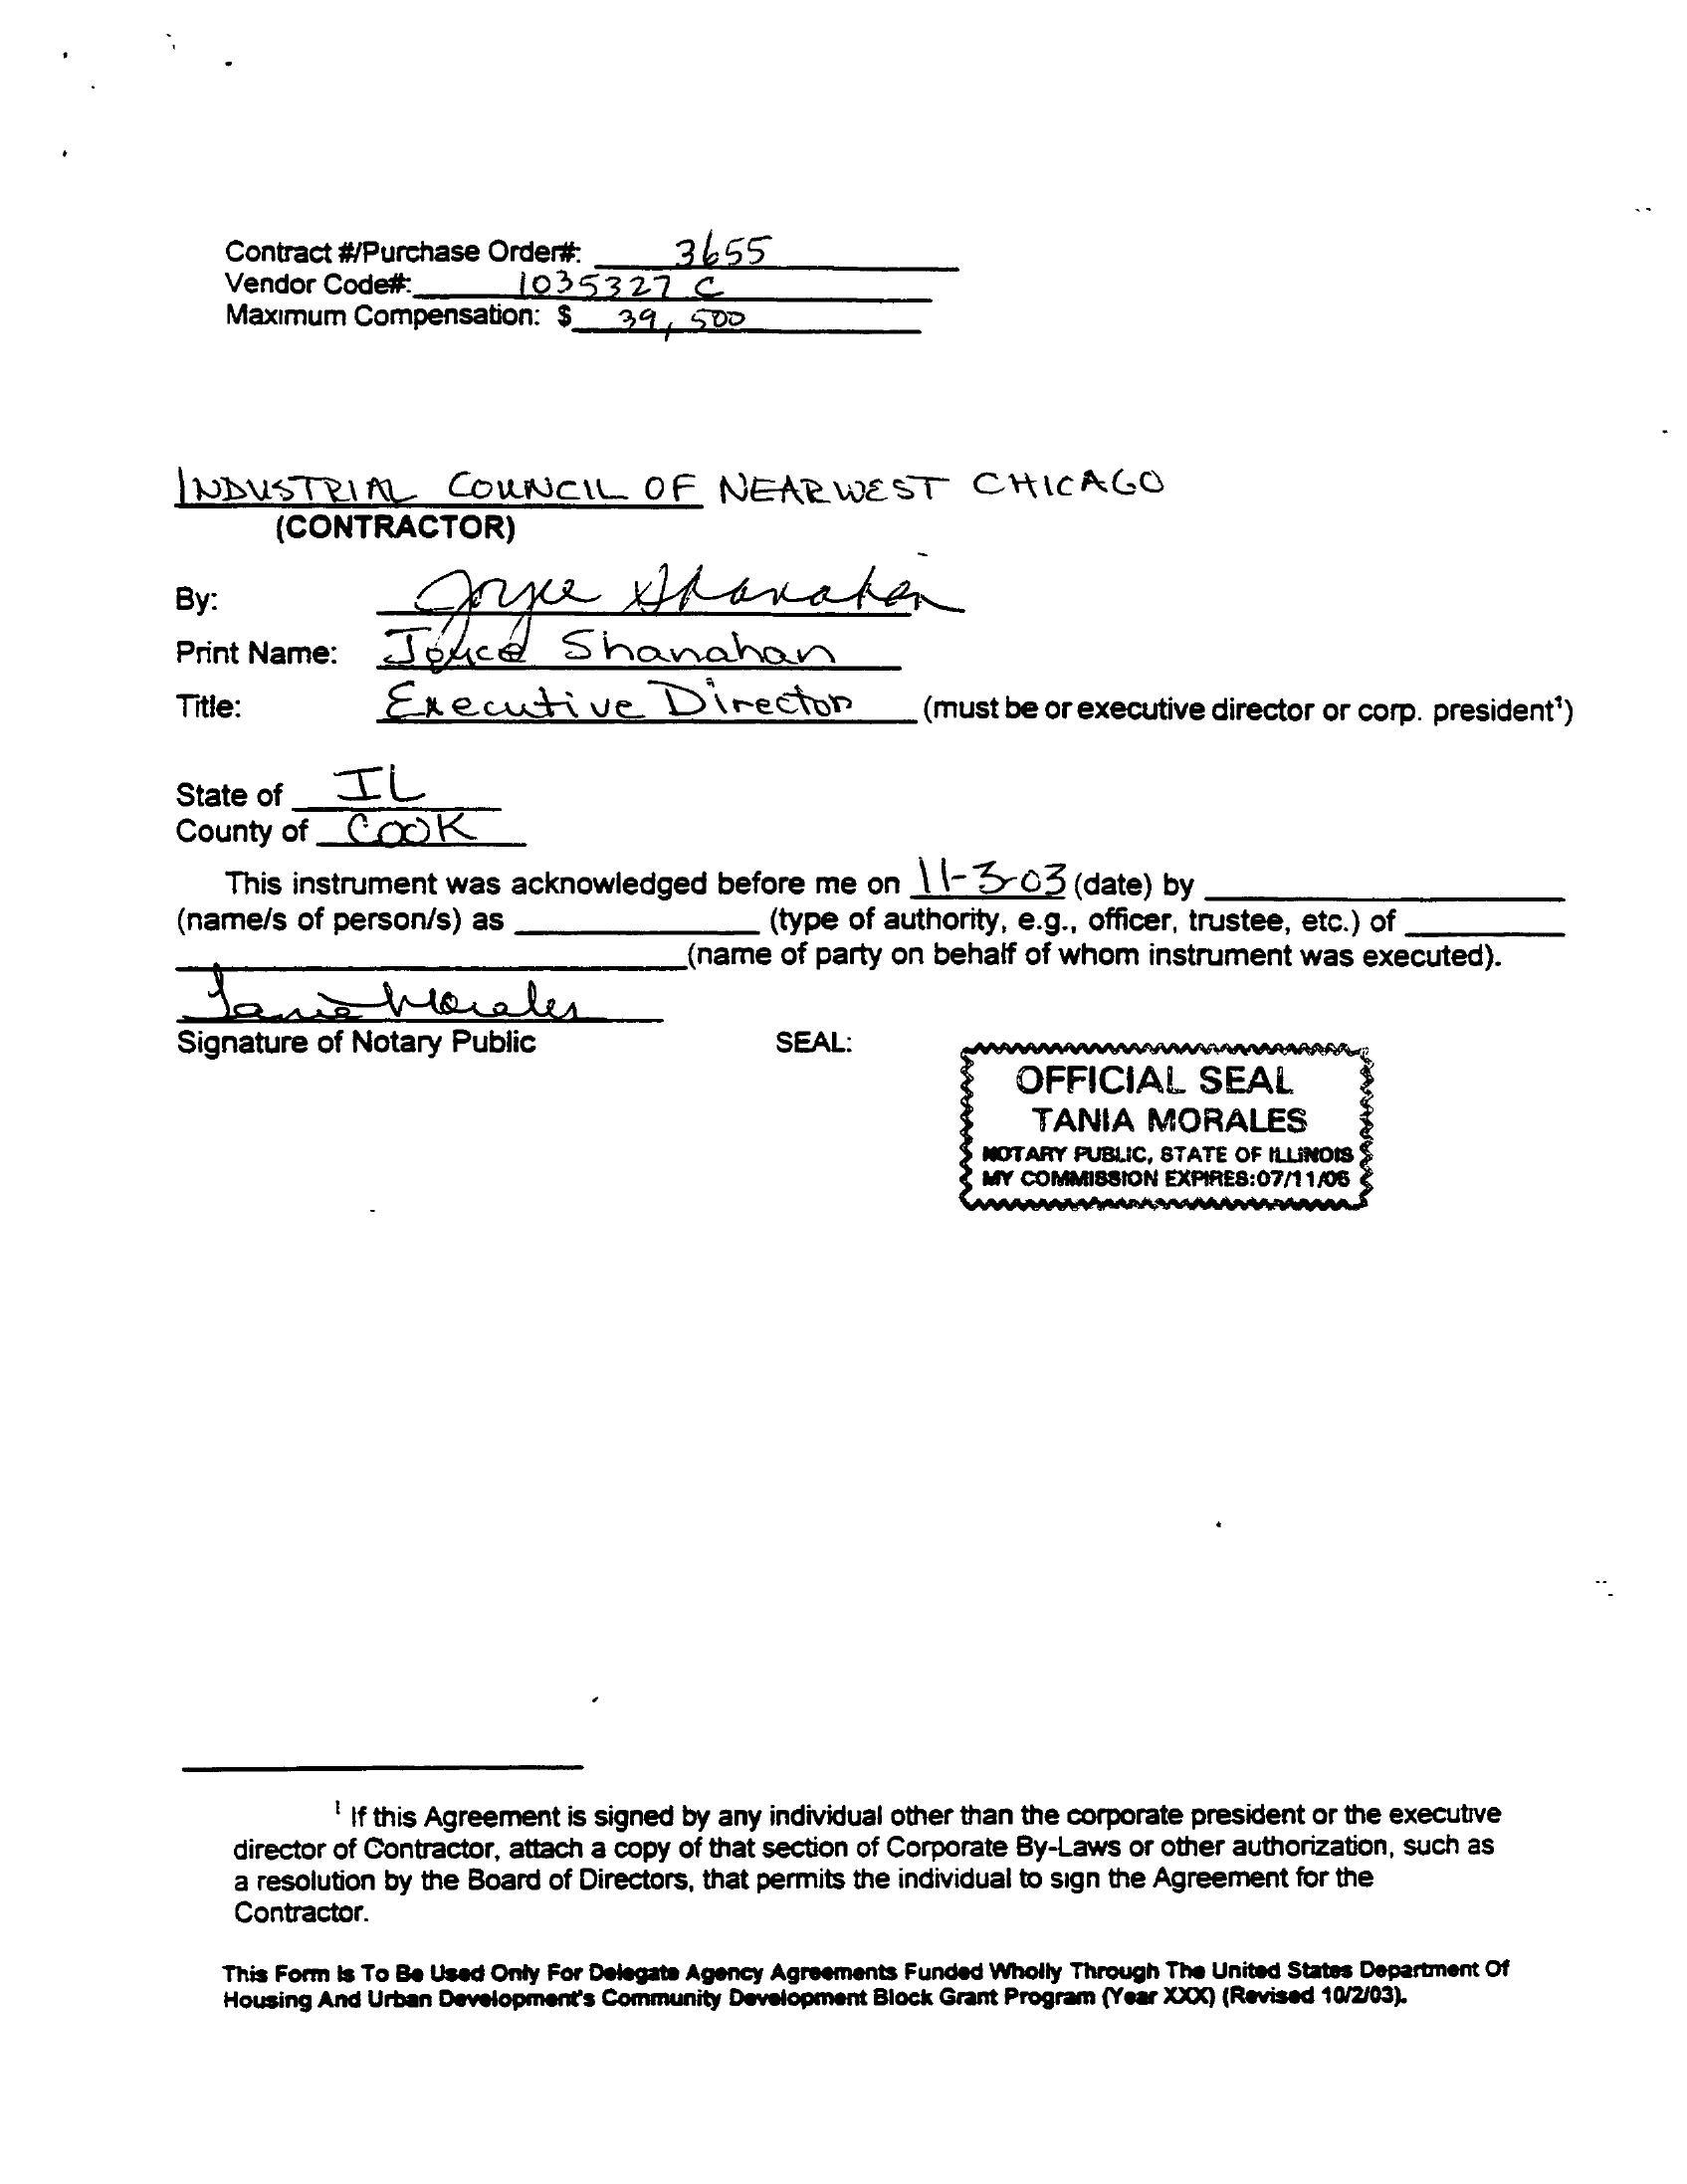 Contract #/Purchase Order#: 3655
Vendor Code#: 1035327 C
Maximum Compensation: $ 39,500
INDUSTRIAL COUNCIL OF NEARWEST CHICAGO
(CONTRACTOR)
By: Joyce Shanahan
Print Name: Joyce Shanahan
Title: Executive Director (must be or executive director or corp. president¹)
State of IL
County of COOK
This instrument was acknowledged before me on 11-3-03 (date) by
(name/s of person/s) as (type of authority, e.g., officer, trustee, etc.) of
(name of party on behalf of whom instrument was executed).
Tania Morales
Signature of Notary Public SEAL:
OFFICIAL SEAL
TANIA MORALES
NOTARY PUBLIC, STATE OF ILLINOIS
MY COMMISSION EXPIRES:07/11/06
¹ If this Agreement is signed by any individual other than the corporate president or the executive
director of Contractor, attach a copy of that section of Corporate By-Laws or other authorization, such as
a resolution by the Board of Directors, that permits the individual to sign the Agreement for the
Contractor.
This Form Is To Be Used Only For Delegate Agency Agreements Funded Wholly Through The United States Department Of
Housing And Urban Development's Community Development Block Grant Program (Year XXX) (Revised 10/2/03).